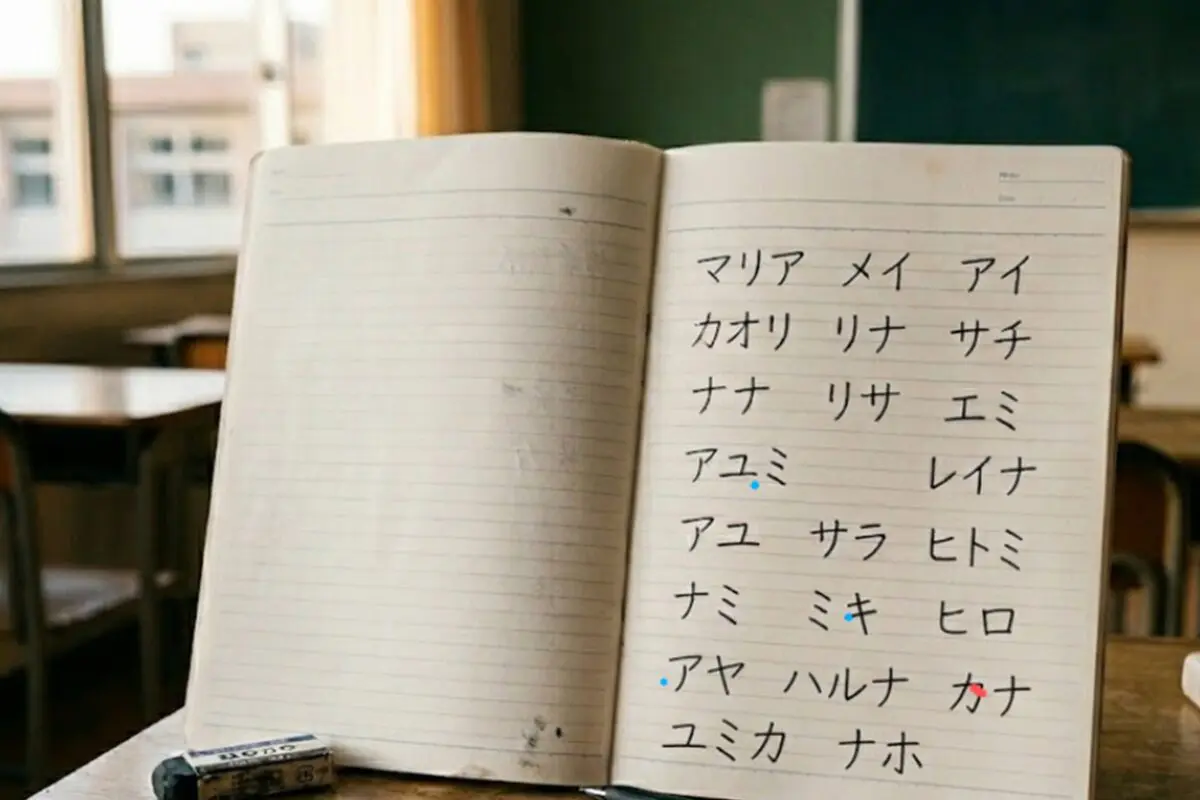 マリア メイ アイ
カオリ リナ サチ
ナナ リサ エミ
アユミ レイナ
アユ サラ ヒトミ
ナミ ミキ ヒロ
アヤ ハルナ カナ
ユミカ ナホ